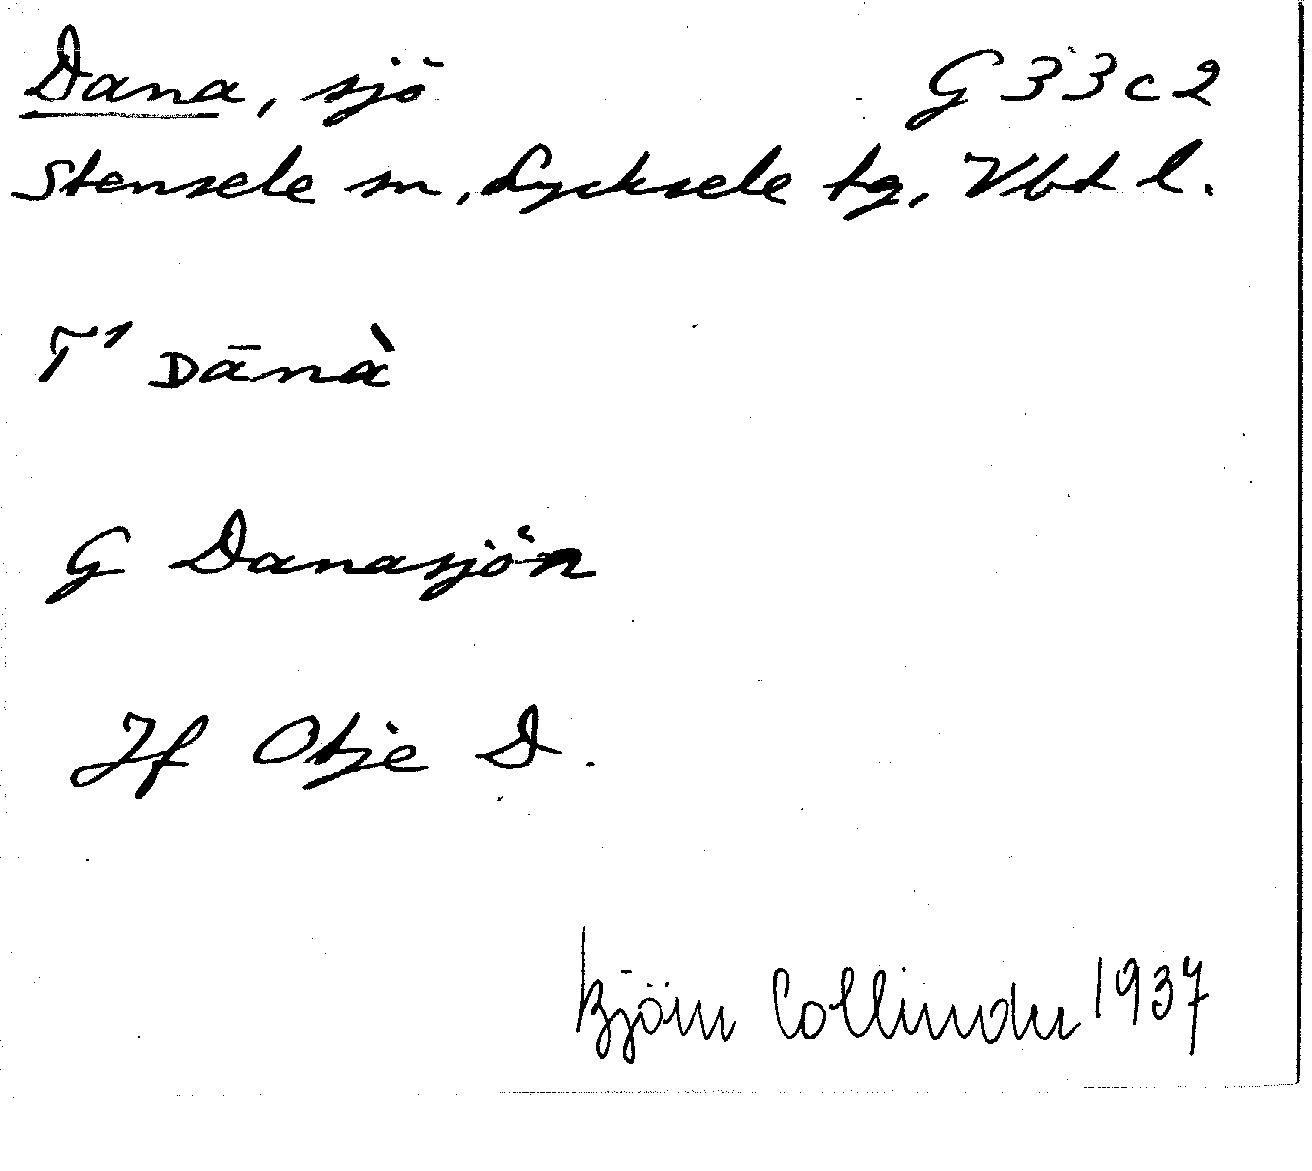 Dana, sjö G 33 c 2
Stensele sn, Lycksele tg, Vbt l.
T' Dānà
G Danasjön
Jf Otje D.
Björn Collinder 1937